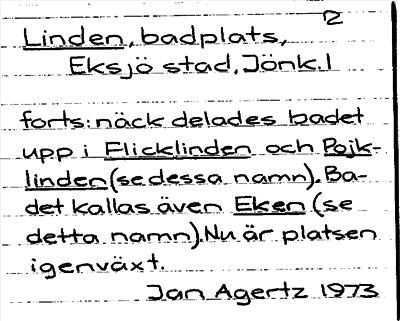 2
Linden, badplats,
Eksjö stad, Jönk. l
forts: näck delades badet
upp i Flicklinden och Pojk-
linden (se dessa namn). Ba-
det kallas även Eken (se
detta namn). Nu är platsen
igenväxt.
Jan Agertz 1973